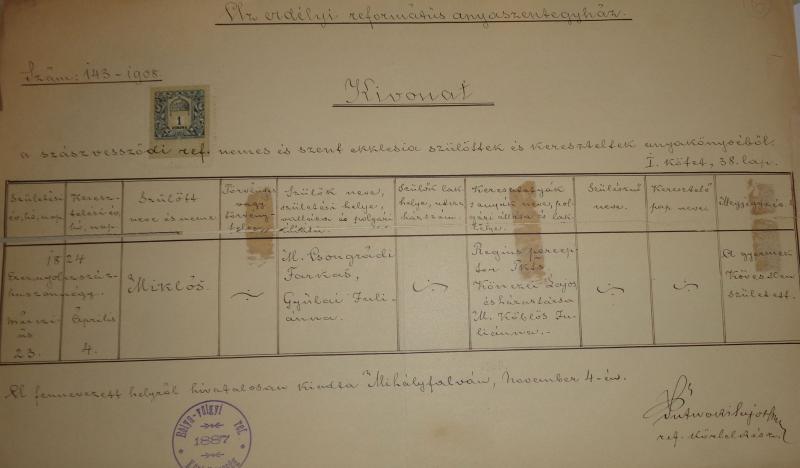 Az erdélyi református anyaszentegyház.
Szám: 143-1908.
1
Kivonat
a szászvessződi ref. nemes és szent ekklésia szülöttek és kereszteltek anyakönyvéből.
I. kötet, 38. lap.
Születési
év, hó, nap.
Keresz-
telési év,
hó, nap.
Szülött
neve és neme
Törvényes
vagy
törvény-
telen
Szülők neve,
születési helye,
vallása és polgári
Szülők lak-
helye, utcza,
házszám.
Keresztatyák
s anyák neve, pol-
gári állása és lak-
helye.
Szülésznő
neve.
Keresztelő
pap neve.
Megjegyzés.
1824
Ezernyolcszáz-
huszonnégy.
márczi-
us
23.
Április
4.
Miklós.
M. Csongrádi
Farkas,
Gyulai Juli-
ánna.
Regius percep-
tor Tkts
Lajos
és házastársa
M. Köblös Ju-
liánna.
A gyermek
Kövesden
született.
A fennevezett helyről hivatalosan kiadta Mihályfalván, November 4-én.
Hólya-völgyi ref.
1887
ref. körlelkész.